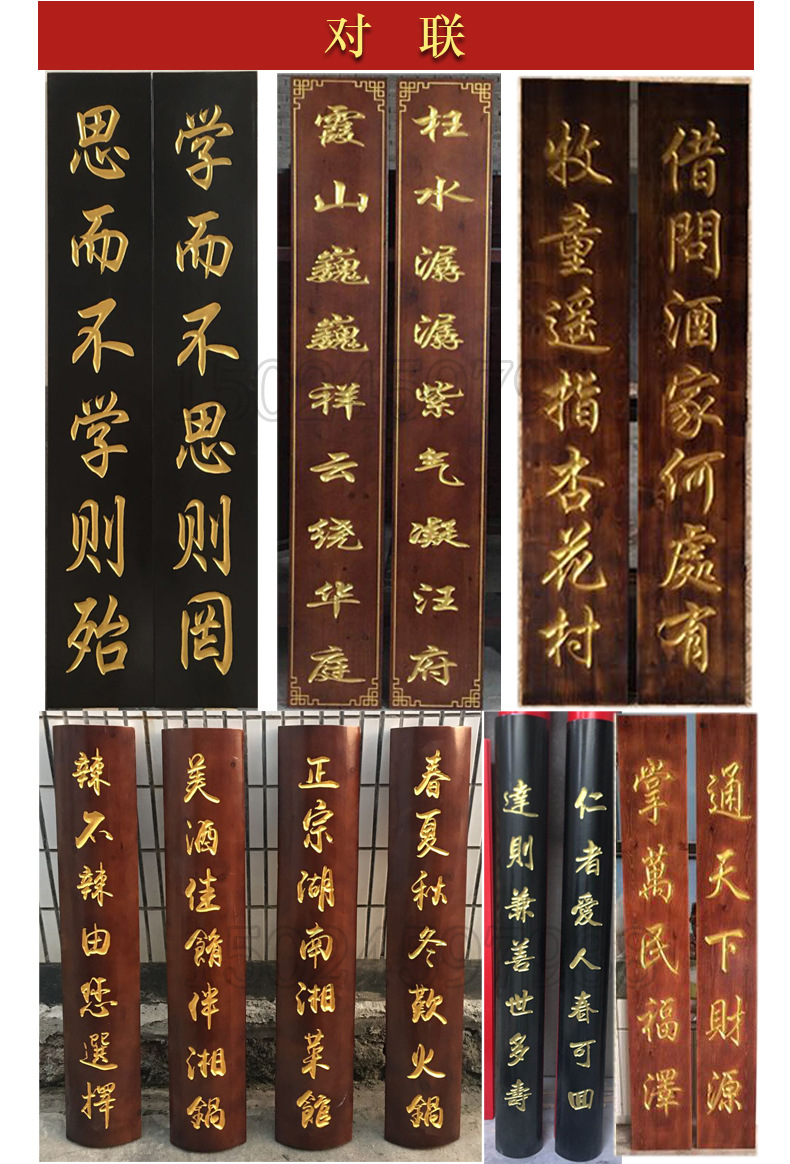 对联
学而不思则罔
思而不学则殆
枉水潺潺紫气凝汪府
霞山巍巍祥云绕华庭
借問酒家何處有
牧童遥指杏花村
春夏秋冬歎火鍋
正宗湖南湘菜館
美酒佳餚伴湘鍋
辣不辣由您選擇
仁者愛人春可囬
達則兼善世多壽
通天下財源
掌萬民福澤